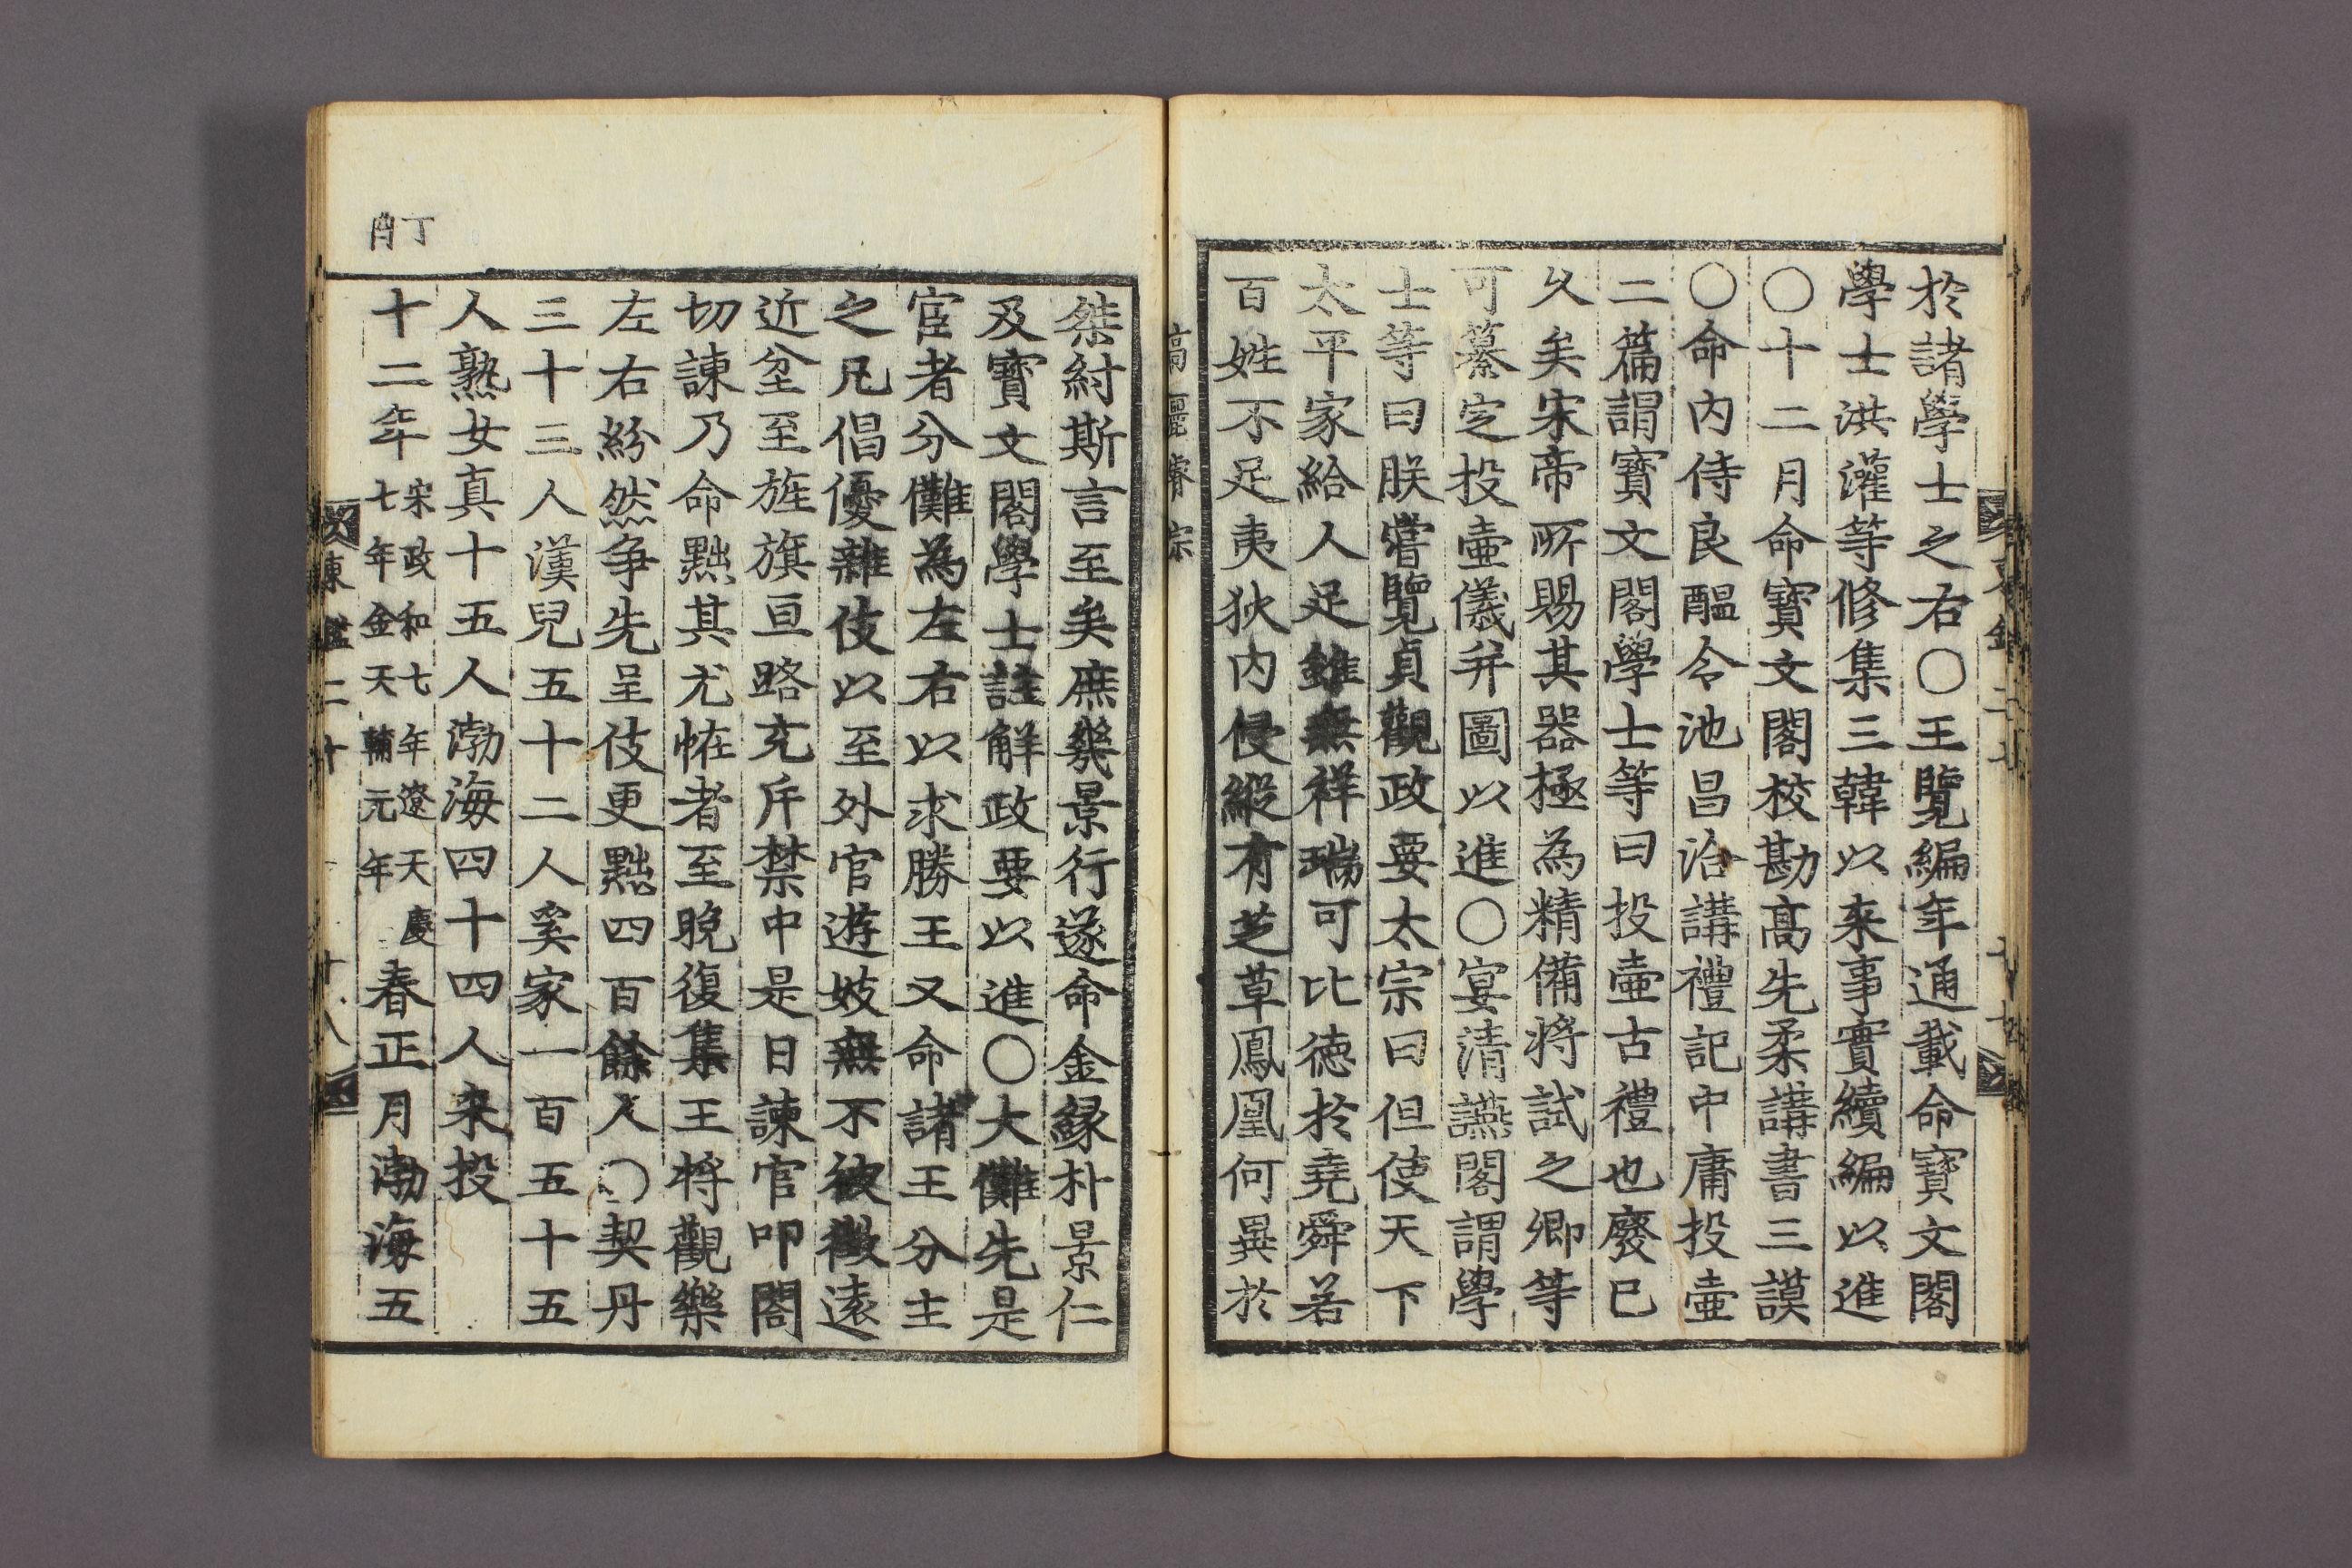 於諸學士之右○王覽編年通載命寶文閣
學士洪灌等修集三韓以来事實續編以進
○十二月命寶文閣校勘髙先柔講書三謨
○命内侍良醞令池昌洽講禮記中庸投壷
二篇謂寶文閣學士等曰投壷古禮也廢已
久矣宋帝所賜其器極為精備将試之卿等
可纂定投壷儀并圖以進○宴清讌閣謂學
士等曰朕嘗覽貞觀政要太宗曰但使天下
太平家給人足雖無祥瑞可比徳於堯舜若
百姓不足夷狄内侵縱有芝草鳳凰何異於
髙麗睿宗
桀紂斯言至矣庶幾景行遂命金縁朴景仁
及寶文閣學士註解政要以進○大儺先是
宦者分儺為左右以求勝王又命諸王分主
之凡倡優雜伎以至外官遊妓無不被徵遠
近坌至旌旗亘路充斥禁中是日諫官叩閤
切諫乃命黜其尤恠者至晩復集王将觀樂
左右紛然争先呈伎更黜四百餘人○契丹
三十三人漢兒五十二人奚家一百五十五
人熟女真十五人渤海四十四人来投
丁酉
十二年宋政和七年遼天慶七年金天輔元年春正月渤海五
東鑑二十
十八